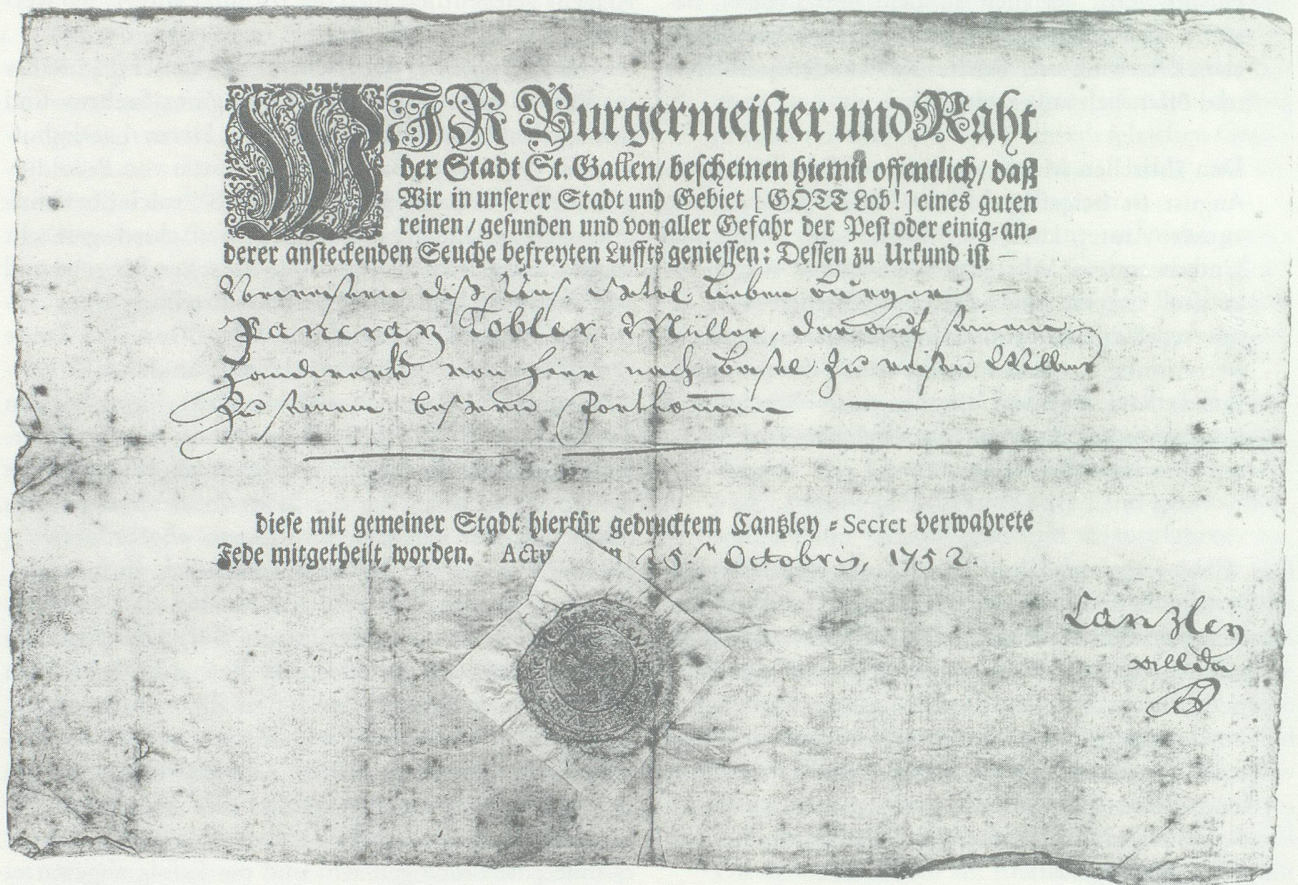 WIR Burgermeister und Raht
der Stadt St. Gallen / bescheinen hiemit offentlich / daß
Wir in unserer Stadt und Gebiet [ GOTT Lob! ] eines guten
reinen / gesunden und von aller Gefahr der Pest oder einig-an-
derer ansteckenden Seuche befreyten Luffts geniessen: Dessen zu Urkund ist –
Vorweisern diß, Lieben Burger
Pancraz Tobler, Müller, der auf seinem
Handwerk von hier nach Basel zu reisen Willens
Zu seinem bessern Forthom̅en
diese mit gemeiner Stadt hierfür gedrucktem Cantzley = Secret verwahrete
Fede mitgetheilt worden. Actum den 25.ten Octobris, 1752.
Canzley